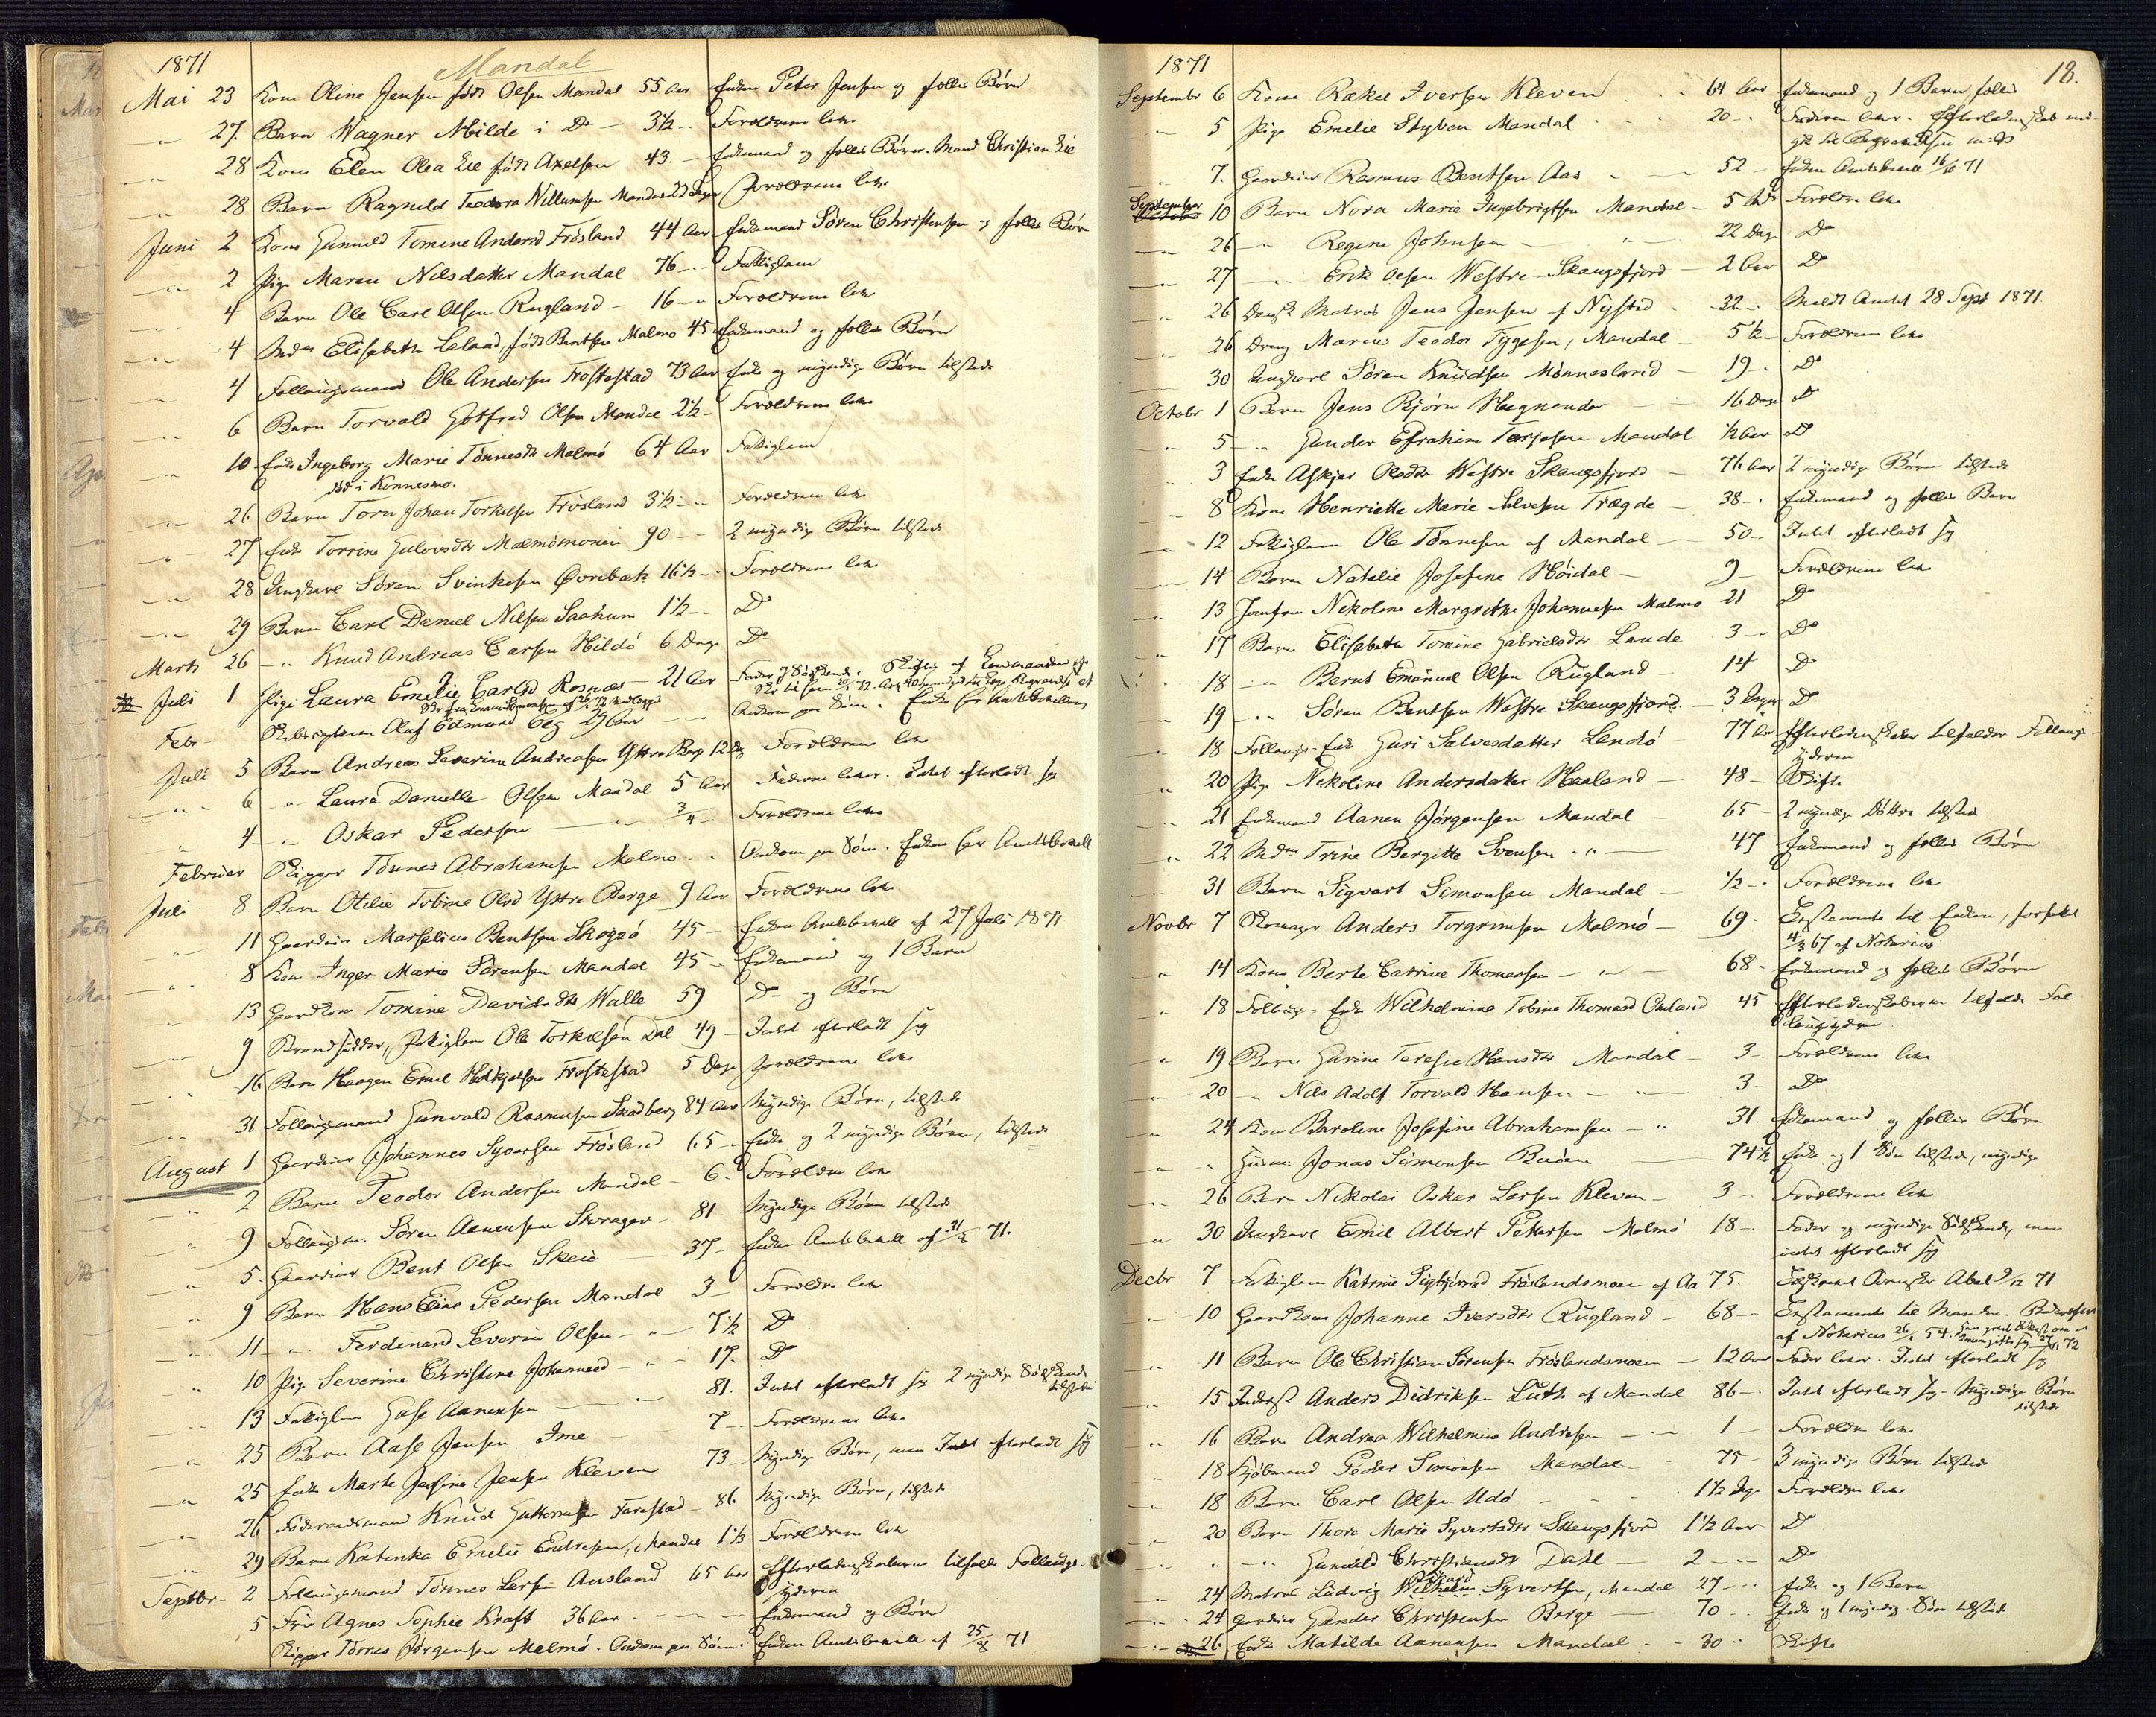 1871
Mandal
Mai 23 Kone Oline Jensen født Olsen Mandal 55 Aar Enkem Peter Jensen og fælles Børn
27. Barn Wagner Milde i Do 3½ Forældrene leve
28 Kone Elen Olea Lie født Axelsen 43. Enkemand og fælles Børn. Mand Christian Lie
28 Barn Ragnild Teodora Willumsen Mandal Dage Forældrene leve
Juni 2 Kone Gunnild Tomine Andersd Frøsland 44 Aar Enkemand Søren Christensen og fælles Børn
2 Pige Maren Nilsdatter Mandal 76 Fattiglem
4 Barn Ole Carl Olsen Rugland 16 Forældrene leve
4 Mdm Elisabeth Laland, født Bentsen Malmø 45 Enkemand og fælles Børn
4 Follaugsmand Ole Andersen Frostestad 73 Aar Enke og myndige Børn tilstede
6 Barn Torvald Gotfred Olsen Mandal 2½ Forældrene leve
10 Enke Ingeborg Marie Tønnesdtr Malmø 64 Aar Fattiglem
død i Konnesmo.
26 Barn Torn Johan Torkelsen Frøsland 3½ Forældrene leve
27 Enke Torrine Gulovsdtr Malmømonen 90 2 myndige Børn tilstede
28 Ungkarl Søren Svinkesen Øvrebæk 16½ Forældrene leve
29 Barn Carl Daniel Nilsen Saanum 1½ Do
Marts 26 Knud Andreas Carsen Hildø 6 Dage Do
Juli 1 Pige Laura Emilie Carlsd Rosnæs 21 Aar Fader og Søskende.
Febr Oluf Edmard 29 Aar Omkom paa Søen. Enke
Juli 5 Barn Andreas Severin Andreasen Yttre Berge 12 Dg Forældrene leve
6 Laura Danielle Olsen Mandal 5 Aar Faderen lever. Intet efterladt sig
4 Oskar Pedersen ¾ Forældrene leve
Februar Skipper Tønnes Abrahamsen Malmø Omkom paa Søen. Enken har Amtsbevill
Juli 8 Barn Otilie Tobine Olsd Yttre Berge 9 Aar Forældrene leve
11 Gaardbr Marselius Bentsen Skogsø 45 Enken Amtsbevill af 27 Juli 1871
8 Kone Inger Marie Sørensen Mandal 45 Enkemand og 1 Barn
13 Gaardkone Tomine Davidsdtr Walle 59 Do og Børn
9 Strandsidder, Fattiglem Ole Torkelsen Dal 49 Intet efterladt sig
16 Barn Haagen Emil Frostestad 5 Dage Forældrene leve
31 Follaugsmand Gunvald Rasmussen Skadberg 84 Aar Myndige Børn, tilstede
August 1 Gaardbr Johannes Syversen Frøsland 65 Enke og 2 myndige Børn, tilstede
2 Barn Teodor Andersen Mandal 6 Forældrene leve
9 Follaugsm. Søren Aanensen Skrager 81 Myndige Børn tilstede
5. Gaardbr Bent Olsen Skeie 37 Enken Amtsbevill af 31/8 71.
9 Barn Hans Elias Pedersen Mandal 3 Forældre leve
11 Ferdinand Severin Olsen 7½ Do
10 Pige Severine Christine Johannesd 17. Do
13 Fattiglem Gose Aanensen 81. Intet efterladt sig. 2 myndige Søskende tilstede
25 Barn Aase Jensen Ime 7 Forældrene leve
25 Enke Marte Jensen Kleven 73 Myndige Børn, men Intet efterladt sig
26 Føderaadsmand Knud Guttormsen Farestad 86 Myndige Børn, tilstede
29 Barn Katinka Emelie Endresen, Mandal 1½ Forældrene leve
Septbr 2 Follaugsmand Tønnes Larsen Ausland 65 Aar Efterladenskaberne tilfalde Follaugs-
yderen
5 Fru Agnes Sophie Kraft 36 Aar Enkemand og Børn
Skipper Tørres Jørgensen Malmø. Omkom paa Søen. Enken Amtsbevill af 25/8 71
1871
18.
Septembr 6 Kone Rakel Iversen Kleven 64 Aar Enkemand og 1 Barn fælles
5 Pige Emelie Styben Mandal 20 Faderen lever. Efterladenskab med-
gik til Begravelsen
7. Gaardbr Rasmus Bentsen Aas 52 Enken Amtsbevill 16/10 71
September 10 Barn Nora Marie Ingebrigtsen Mandal 5 Forældre leve
26 Regine Johnsen 22 Dage Do
27 Erik Olsen Westre Skaugsfjord 2 Aar Do
26 Dansk Matros Jens Jensen af Nysted 32 Meldt Amtet 28 Sept 1871
26 Dreng Marius Teodor Tygesen, Mandal 5½ Forældrene leve
30 Ungkarl Søren Knudsen Mønnesland 19. Do
Octobr 1 Barn Jens Bjørn Hegnender 16 Dage Do
5 Gunder Efraihim Tarjesen Mandal ½ Aar Do
3 Enke Askjer Olsdtr Westre Skaugsfjord 76 Aar 2 myndige Børn tilstede
8 Kone Henriette Marie Salvesen Trægde 38 Enkemand og fælles Børn
12 Fattiglem Ole Tønnesen af Mandal 50 Intet efterladt sig
14 Barn Natalie Josefine Høidal 9 Forældrene leve
13 Jomfru Nekoline Margrethe Johannesen Malmø 21 Do
17 Barn Elisabeth Tomine Gabrielsdtr Lande 3 Do
18 Bernt Emanuel Olsen Rugland 14 Do
19 Søren Bentsen Westre Skaugsfjord 3 Dage Do
18 Follaugs-Enke Guri Salvesdatter Landø 77 Aar Efterladenskaber tilfalder Follaugs-
yderen
20 Pige Nikoline Andersdatter Haaland 48 Skifte
21 Enkemand Aanen Jørgensen Mandal 65 2 myndige Døttre tilstede
22 Mdm Trine Bergitte Svensen 47 Enkemand og fælles Børn
31 Barn Sigvart Simonsen Mandal ½ Forældrene leve
Novbr 7 Anders Torgrimsen Malmø 69. Testamente til Enken,
67 af Notarius
14 Kone Berte Catrine Thomassen 68 Enkemand og fælles Børn
18 Follaugs-Enke Wilhelmine Tobine Thomasd 45 Efterladenskaberne tilfalde Fol
laugsyderen
19 Barn Gurine Teresie Hansdtr Mandal 3 Forældrene leve
20 Nils Adolf Torvald Hansen 3 Do
24 Kone Karoline Josefine Abrahamsen 31. Enkemand og fælles Børn
Jonas Simonsen 74½ Enke og 1 Søn tilstede, myndig
26 Barn Nikolai Oskar Larsen Kleven 3 Forældrene leve
30 Ungkarl Emil Albert Pettersen Malmø 18 Fader og myndige Søskende, men
intet efterladt sig
Decbr 7 Fattiglem Katrine Sigbjørnsd Frøslandsmoen 75. 71
10 Gaardkone Johanne Iversdtr Rugland 68 Testamente til Manden.
af Notarius 26/ 54.
11 Barn Ole Christian Sørensen Frøslandsmoen 12 Aar Fader lever. Intet efterladt sig
15 Inderst Anders Didriksen Luth af Mandal 86 Intet efterladt sig. Myndige Børn
tilstede
16 Barn Andrea Wilhelmine Andresen 1 Forældre leve
18 Kjøbmand Peder Simonsen Mandal 75 3 myndige Børn tilstede
18 Barn Carl Olsen Udø 1½ Dg. Forældre leve
20 Barn Thora Marie Syvertsdtr Skaugsfjord 1½ Aar Do
Gunnild Christiansdtr Dahl 2 Do
24 Matros Ludvig Rikard Wilhelm Syvertsen, Mandal 27 Enke og 1 Barn
24 Gaardbr Gunder Christensen Berge 70 Enke og 1 myndig Søn tilstede
26 Enke Matilde Aanensen Mandal 30 Skifte